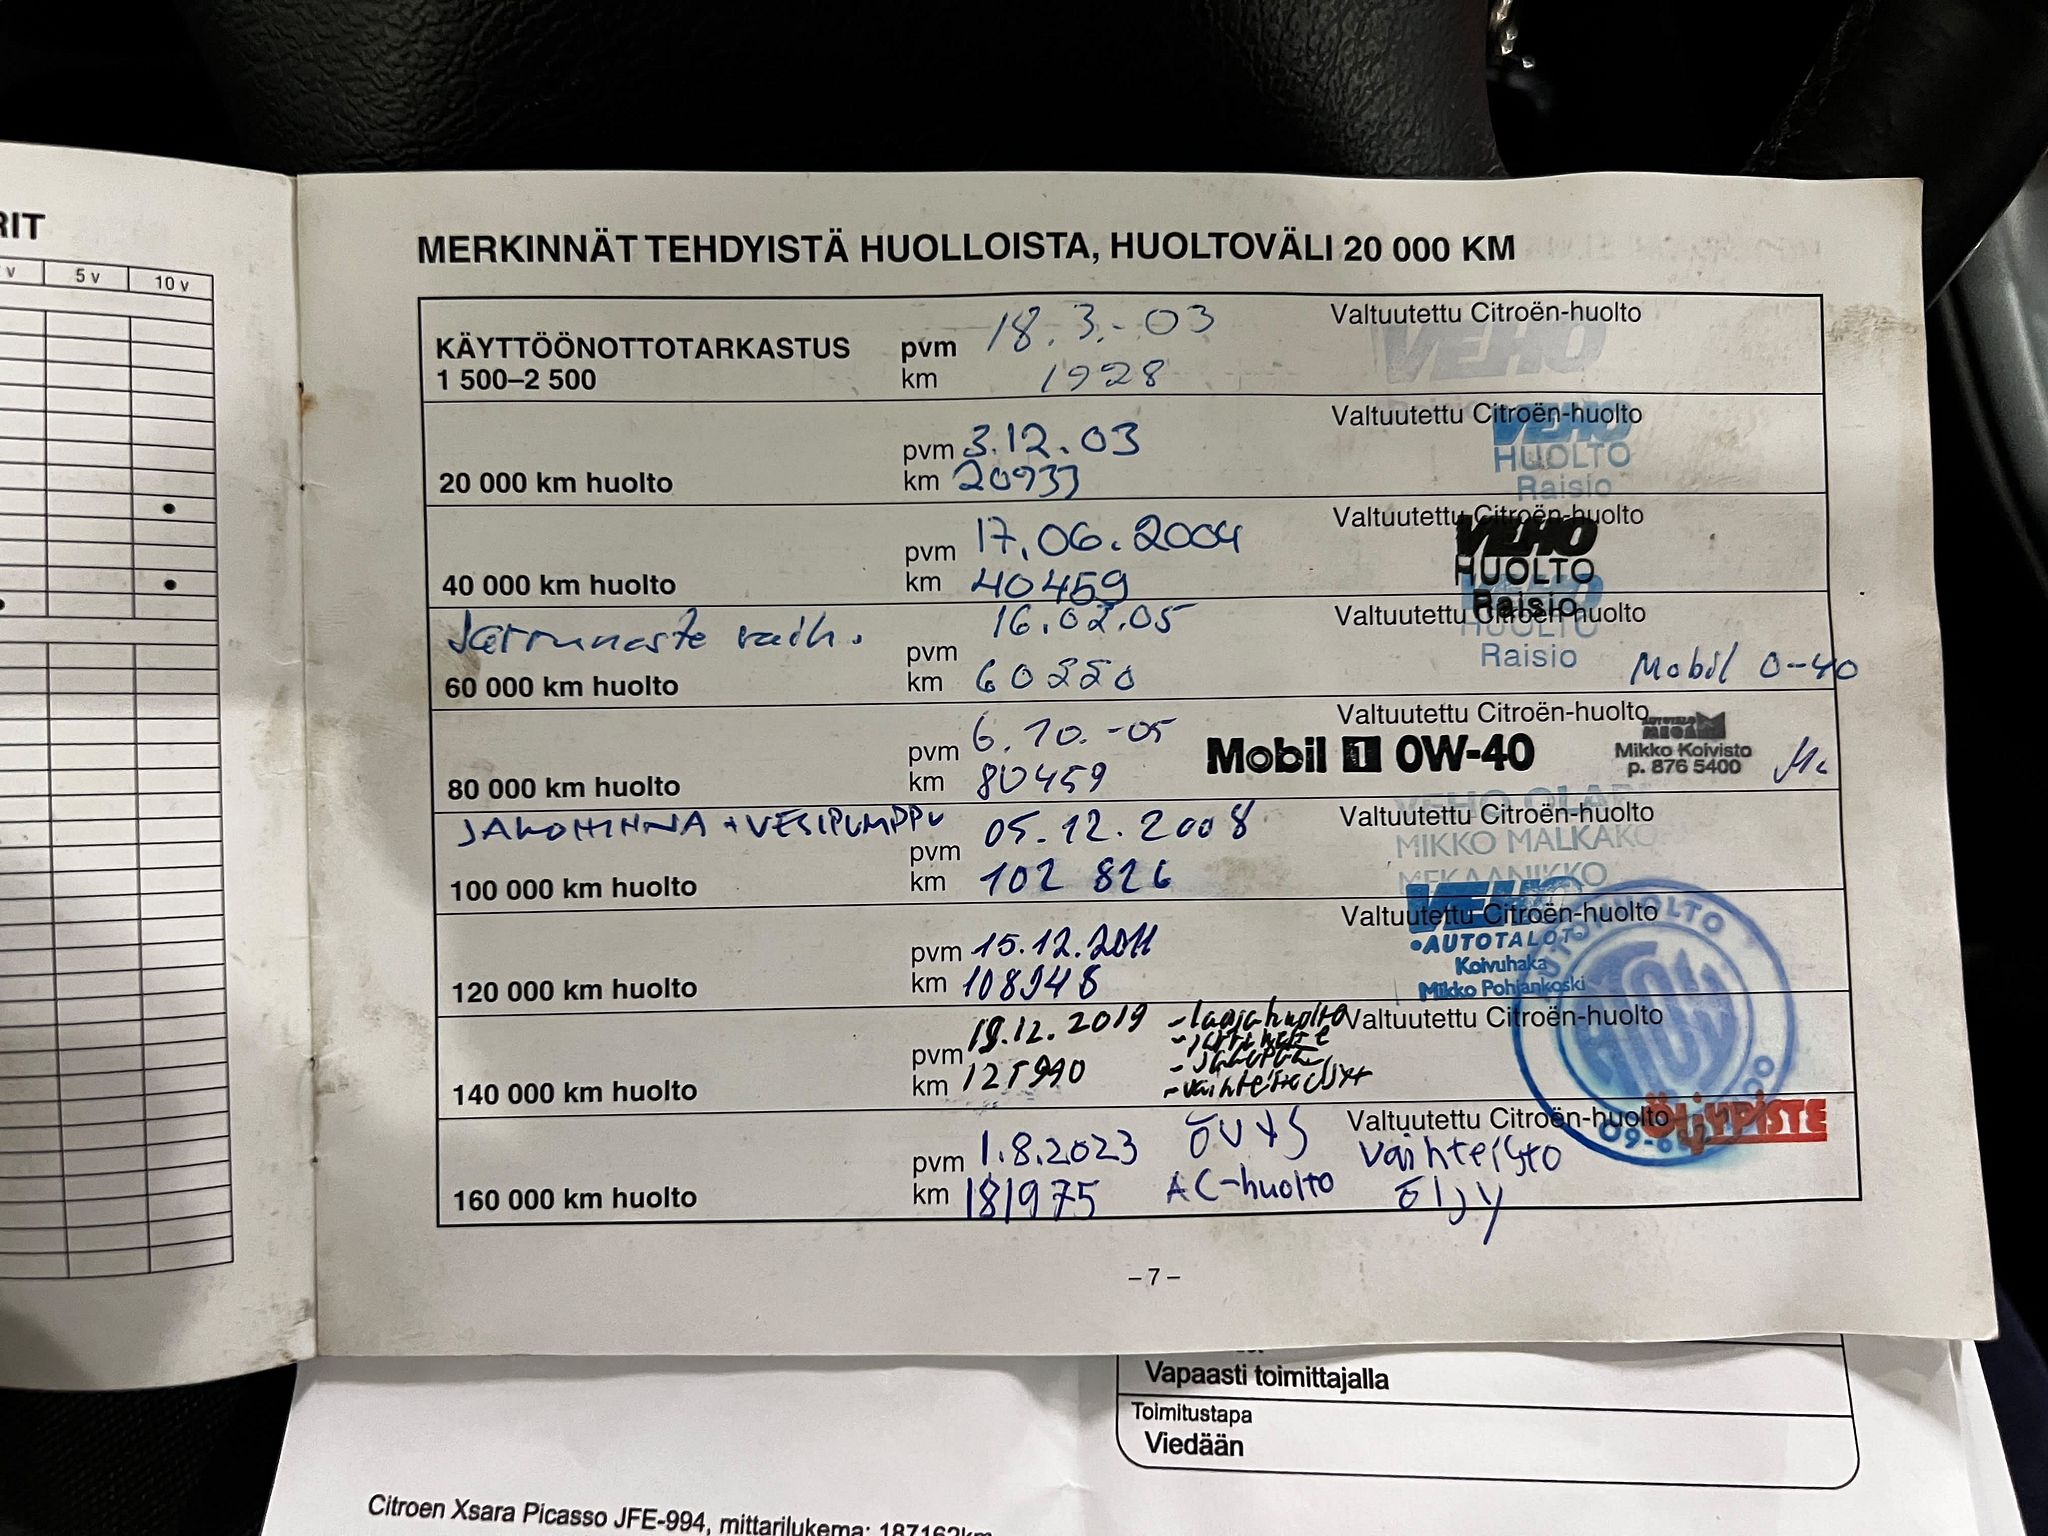 RIT
v 5 v 10 v
MERKINNÄT TEHDYISTÄ HUOLLOISTA, HUOLTOVÄLI 20 000 KM
KÄYTTÖÖNOTTOTARKASTUS
1 500–2 500
pvm 18.3.-03
km 1928
Valtuutettu Citroën-huolto
VEHO
Raisio
20 000 km huolto
pvm 3.12.03
km 20933
Valtuutettu Citroën-huolto
VEHO
HUOLTO
Raisio
40 000 km huolto
pvm 17.06.2004
km 40459
Valtuutettu Citroën-huolto
VEHO
HUOLTO
Raisio
Jarruneste vaih.
60 000 km huolto
pvm 16.02.05
km 60220
Valtuutettu Citroën-huolto
HUOLTO
Raisio
Mobil 0-40
80 000 km huolto
pvm 6.10.-05
km 80459
Valtuutettu Citroën-huolto
Mobil 1 0W-40
Mikko Koivisto
p. 876 5400
JAKOHIHNA + VESIPUMPPU
100 000 km huolto
pvm 05.12.2008
km 102 826
Valtuutettu Citroën-huolto
VEHO OLARI
MIKKO MALKAKO
MEKAANIKKO
120 000 km huolto
pvm 15.12.2011
km 108948
Valtuutettu Citroën-huolto
VEHO
AUTOTALOT
Koivuhaka
Mikko Pohjankoski
140 000 km huolto
pvm 19.12.2019
km 125990
- laajahuolto
- jarruneste
- vaihteistoöljyt
Valtuutettu Citroën-huolto
AUTOHUOLTO
160 000 km huolto
pvm 1.8.2023
km 181975
ÖVYS
AC-huolto
Valtuutettu Citroën-huolto
Vaihteisto
öljy
ÖLJYPISTE
– 7 –
Vapaasti toimittajalla
Toimitustapa
Viedään
Citroen Xsara Picasso JFE-994, mittarilukema: 187162km